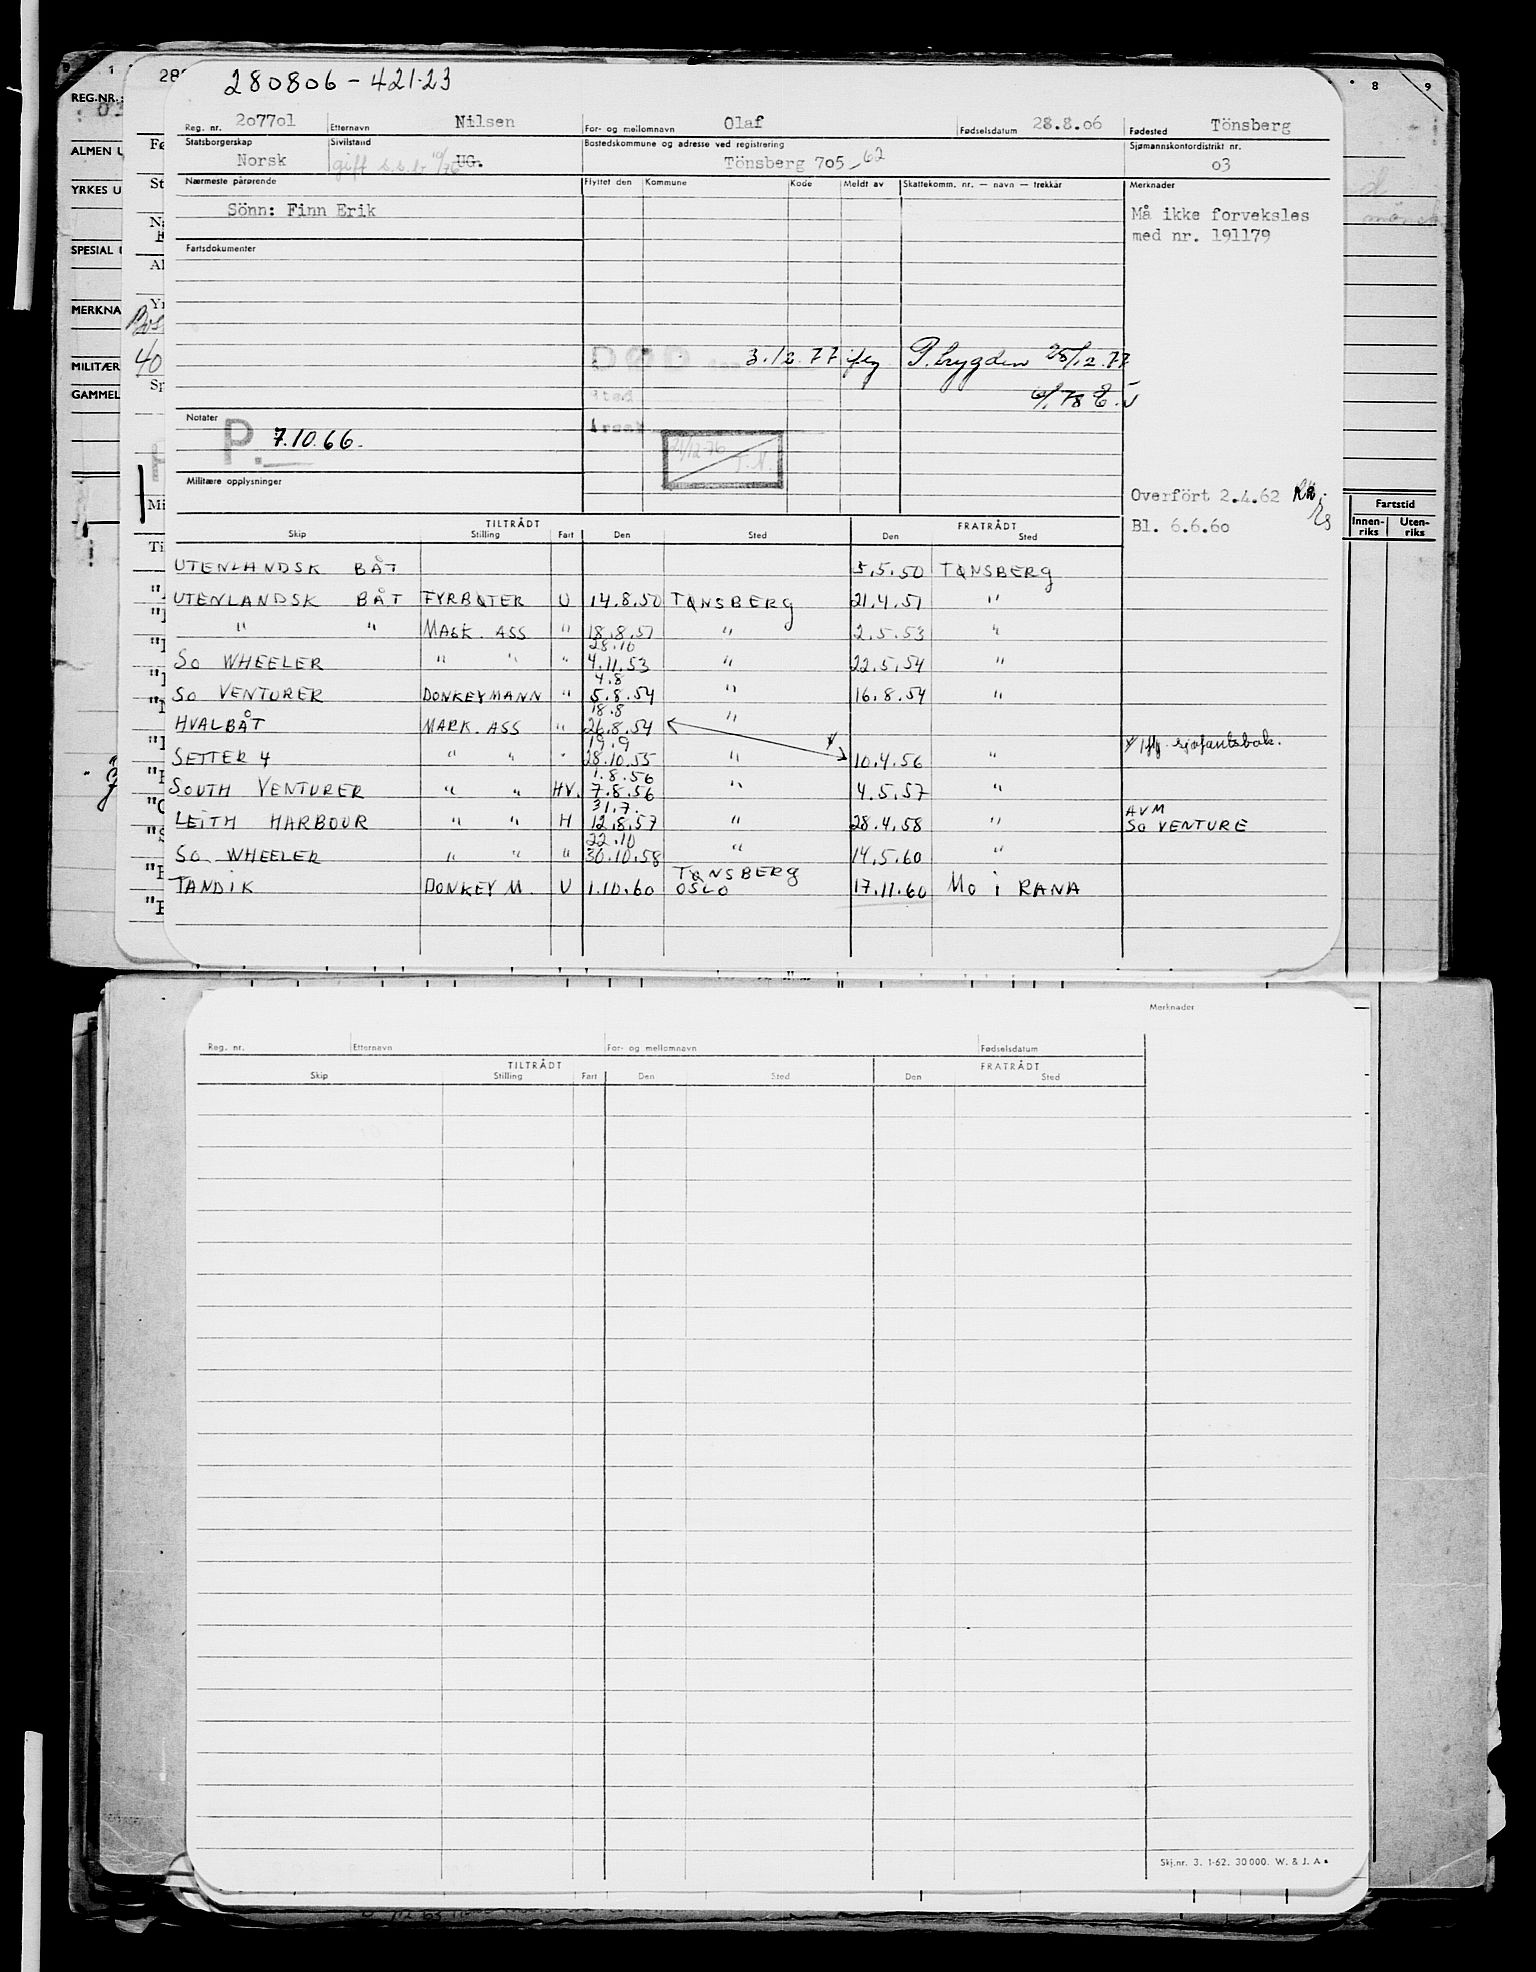 280806 - 421.23
Reg. nr. 207701 Etternavn Nilsen For- og mellomnavn Olaf Fødselsdatum 28.8.06 Fødested Tönsberg
Statsborgerskap Norsk Sivilstand gift s.s.b. 10/76 UG. Bostedskommune og adresse ved registrering Tönsberg 705 - 62 Sjømannskontordistrikt nr. 03
Nærmeste pårørende Flyttet den Kommune Kode Meldt av Skattekomm. nr. — navn — trekkår Merknader
Sönn: Finn Erik Må ikke forveksles
med nr. 191179
Fartsdokumenter
DØD 3.12.77 iflg P.trygden 28/12.77
sted 6/1 78
Årsak
Notater
P. 7.10.66.
21/12-76 T.N.
Militære opplysninger
Overfört 2.4.62
Bl. 6.6.60
TILTRÅDT FRATRÅDT
Skip Stilling Fart Den Sted Den Sted
UTENLANDSK BÅT 5.5.50 TØNSBERG
UTENLANDSK BÅT FYRBØTER U 14.8.50 TØNSBERG 21.4.51 "
" " MASK. ASS " 18.8.51 " 2.5.53 "
28.10
SO WHEELER " " " 4.11.53 " 22.5.54 "
4.8
SO VENTURER DONKEYMANN " 5.8.54 " 16.8.54 "
18.8
HVALBÅT MASK. ASS " 26.8.54 "
19.9
SETTER 4 " " " 28.10.55 " 10.4.56 " iflg. sjøfartsbok.
1.8.56
SOUTH VENTURER " " HV. 7.8.56 " 4.5.57 "
31.7.
LEITH HARBOUR " " H 12.8.57 " 28.4.58 " AVM
SO VENTURE
22.10
SO WHEELER " " " 30.10.58 " 14.5.60 "
TANDIK DONKEY M. U 1.10.60 TØNSBERG
OSLO 17.11.60 MO i RANA
REG.NR.:
ALMEN U
YRKES U
SPESIAL U
MERKNA
MILITÆR
GAMMEL
1
8 9
Fartstid
Innen-
riks Uten-
riks
Merknader
Reg. nr. Etternavn For- og mellomnavn Fødselsdatum
TILTRÅDT FRATRÅDT
Skip Stilling Fart Den Sted Den Sted
Skj.nr. 3. 1-62. 30 000. W. & J. A.